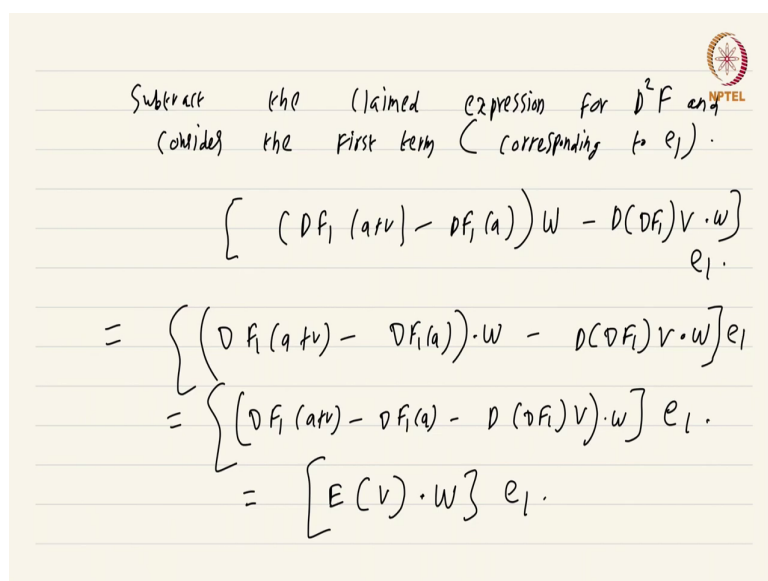 NPTEL
Subtract the claimed expression for D²F and
consider the first term ( corresponding to e₁) .
[ ( DF₁ (a+v) - DF₁ (a) ) W - D(DF₁) V · W]
e₁ .
= { ( D F₁ (a+v) - DF₁(a) ) · W - D(DF₁) V · W ] e₁
= { ( DF₁ (a+v) - DF₁(a) - D (DF₁) V ) · W ] e₁ .
= [ E (V) · W } e₁ .